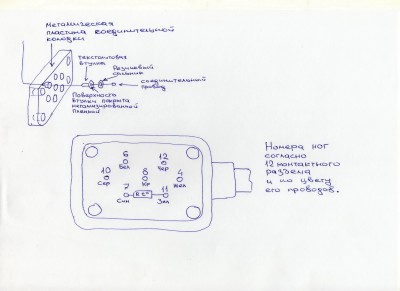 Металлическая
пластина соединительной
колодки
текстолитовая
втулка
Резиновый
сальник
соединительный
провод
Поверхность
втулки покрыта
металлизированной
пленкой
Номера ног
согласно
12 контактного
разъема
и по цвету
его проводов.
6
Бел
12
Чер
10
Сер
8
Кр
4
Жел
7
Син
11
Зел